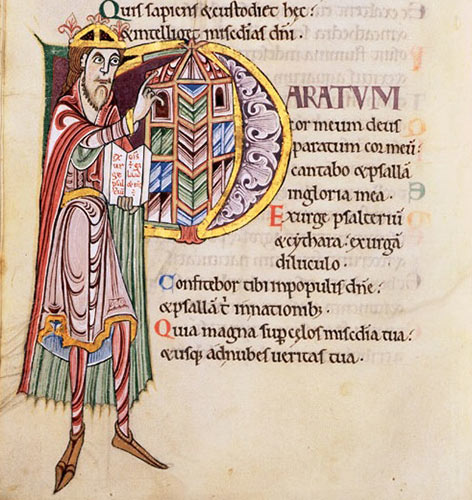 Quis sapiens & custodiet hęc:
& intelliget misc̄dias dn̄i.
PARATVM
cor meum deus
paratum cor meū:
cantabo & psallā
in gloria mea.
Exurge psalteriū
& cythara: exurgā
diluculo.
Confitebor tibi in populis dn̄e:
& psallā t̄ in nationib;
Quia magna sup̄ cęlos misc̄dia tua:
& usq; ad nubes veritas tua.
ex
ur
ge
psal